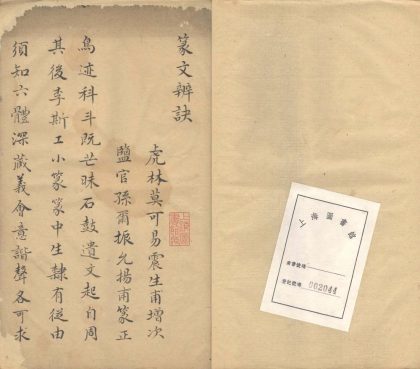 篆文辨訣
虎林莫可易震生甫增次
鹽官孫爾振允揚甫篆正
鳥迹科斗旣茫昧石鼓遺文起自周
其後李斯工小篆篆中生隸有從由
須知六體深藏義會意諧聲各可求
上海圖書館
登記號碼 002044